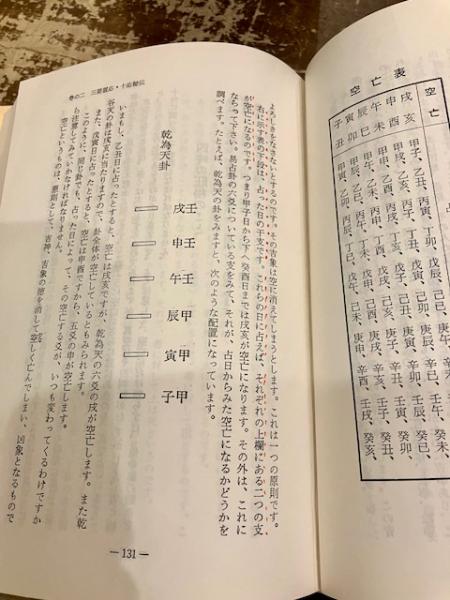 空亡表
空亡
戌亥 甲子、乙丑、
申酉 甲戌、乙亥、丙子、丁丑、戊寅、己卯、庚辰、辛巳、壬午、癸未
午未 甲申、乙酉、丙戌、丁亥、戊子、己丑、庚寅、辛卯、壬辰、癸巳
辰巳 甲午、乙未、丙申、丁酉、戊戌、己亥、庚子、辛丑、壬寅、癸卯
寅卯 甲辰、乙巳、丙午、丁未、戊申、己酉、庚戌、辛亥、壬子、癸丑
子丑 甲寅、乙卯、丙辰、丁巳、戊午、己未、庚申、辛酉、壬戌、癸亥
よろしきをなさないとするのです。その吉象は空に消えてしまうとします。これは一つの原則です。
右に示す表の下段は、占った日の干支です。これらの日に占えば、それぞれの上欄にある二つの支
が空亡になるのです。つまり甲子日から下へ癸酉日までは戌亥が空亡になります。その外は、これに
ならって下さい。易占卦の六爻についている支をみて、それが、占日からみた空亡になるかどうかを
調べます。たとえば、乾為天の卦をみますと、次のような配置になっています。
乾為天卦
壬戌
壬申
壬午
甲辰
甲寅
甲子
いまもし、乙丑日に占ったとすると、空亡は戌亥ですが、乾為天の六爻の戌が空亡します。また乾
為天の卦は戌亥に当たりますので、卦全体が空亡しているともみられます。
また、戊寅日に占ったとすると、空亡は申酉ですから、五爻の申が空亡します。
このように、同じ卦でも、占った日によって、その空亡する爻が、いつも変わってくるわけですか
ら注意してみてゆかなければなりません。
空亡というものは、悪則として、吉神、吉象の徳を消して空しく亡んでしまい、凶象となるもので
巻の二 三要霊応・十応秘伝
— 131 —